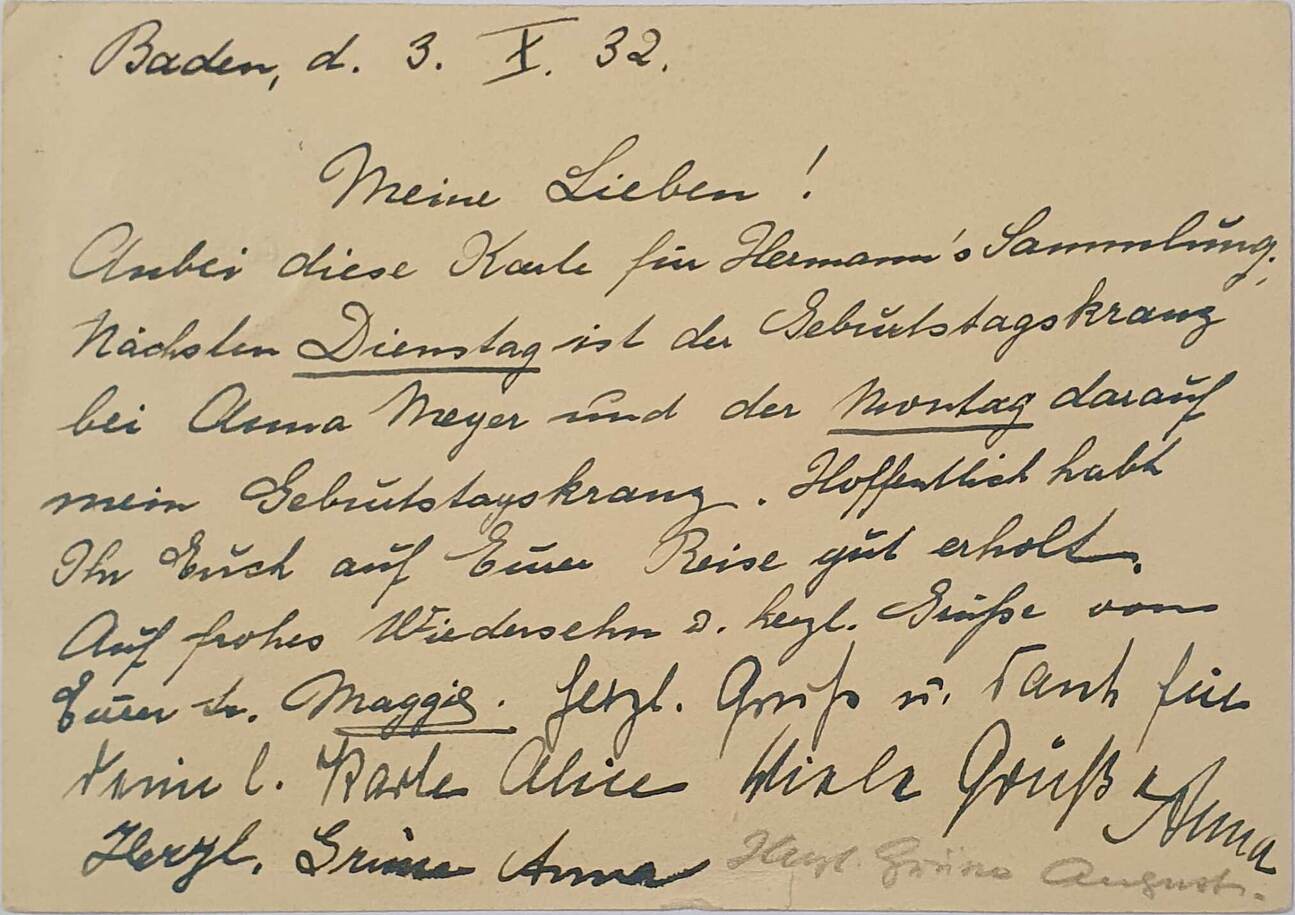 Baden, d. 3. X. 32.
Meine Lieben!
Anbei diese Karte für Hermann's Sammlung.
Nächsten Dienstag ist der Geburtstagskranz
bei Anna Meyer und der Montag darauf
mein Geburtstagskranz. Hoffentlich habt
Ihr Euch auf Eurer Reise gut erholt.
Auf frohes Wiedersehn u. herzl. Grüße von
Eurer tr. Maggie. Herzl. Gruß u. Dank für
Deine l. Karte Alice Viele Grüße Anna
Herzl. Grüsse Anna Herzl. Grüsse August.